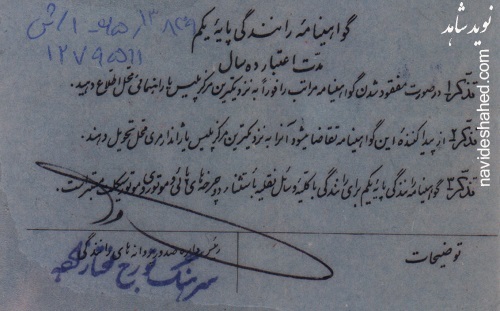 گواهینامهٔ رانندگی پایهٔ یکم
مدت اعتبار ده سال
تذکر۱ـ در صورت مفقود شدن گواهینامه مراتب را فوراً به نزدیکترین مرکز پلیس یا راهنمائی محل اطلاع دهید.
تذکر۲ـ از پیدا کنندهٔ این گواهینامه تقاضا میشود آنرا به نزدیکترین مرکز پلیس یا ژاندارمری محل تحویل دهند.
تذکر۳ـ گواهینامه رانندگی پایهٔ یکم برای رانندگی با کلیه وسائل نقلیه باستثناء دوچرخه‌های پائی و موتوری و موتورسیکلت معتبر است.
توضیحات
رئیس اداره صدور پروانه های رانندگی
سرهنگ
نوید شاهد
navideshahed.com